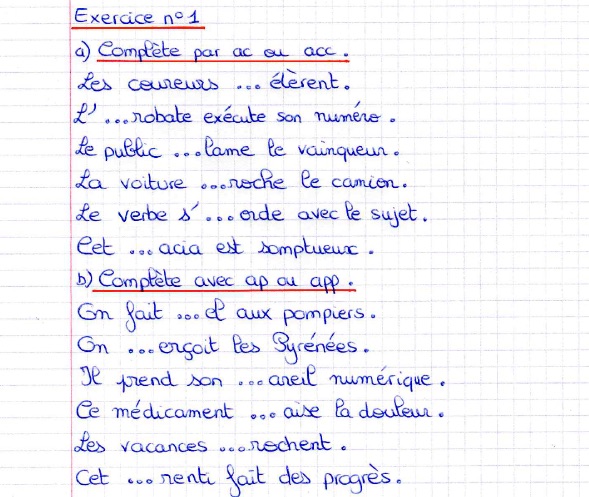 Exercice n°1
a) Complète par ac ou acc.
Les coureurs ... élèrent.
L' ...robate exécute son numéro.
Le public ...lame le vainqueur.
La voiture ...roche le camion.
Le verbe s' ...orde avec le sujet.
Cet ...acia est somptueux.
b) Complète avec ap ou app.
On fait ...el aux pompiers.
On ...erçoit les Pyrénées.
Il prend son ...areil numérique.
Ce médicament ...aise la douleur.
Les vacances ...rochent.
Cet ...renti fait des progrès.